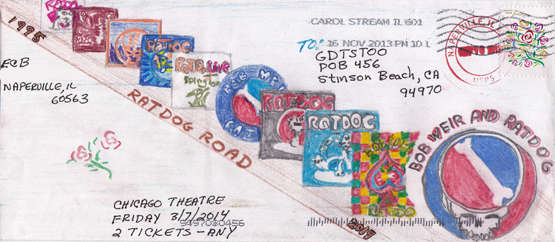 1995
EGB
NAPERVILLE, IL
60563
CAROL STREAM IL 601
16 NOV 2013 PM 10 L
TO:
GDTSTOO
POB 456
Stinson Beach, CA
94970
NAPERVILLE, IL
USPS
RATDOG ROAD
RATDOG
RATDOG
RATDOG
BOB WEIR AND RATDOG
2014
CHICAGO THEATRE
FRIDAY 3/7/2014
94970$0456
2 TICKETS - ANY